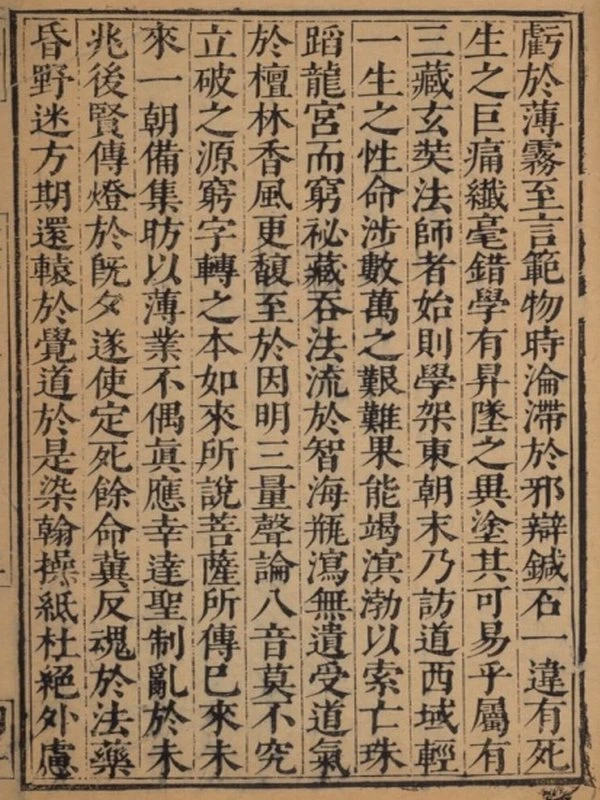 虧於薄霧至言範物時淪滯於邪辯鍼石一違有死
生之巨痛纖毫錯學有昇墜之異塗其可易乎屬有
三藏玄奘法師者始則學架東朝末乃訪道西域輕
一生之性命涉數萬之艱難果能竭溟渤以索亡珠
蹈龍宮而窮祕藏吞法流於智海瓶瀉無遺受道氣
於檀林香風更馥至於因明三量聲論八音莫不究
立破之源窮字轉之本如來所說菩薩所傳已來未
來一朝備集昉以薄業不偶眞應幸達聖制亂於未
兆後賢傳燈於旣夕遂使定死餘命冀反魂於法藥
昏野迷方期還轅於覺道於是染翰操紙杜絕外慮